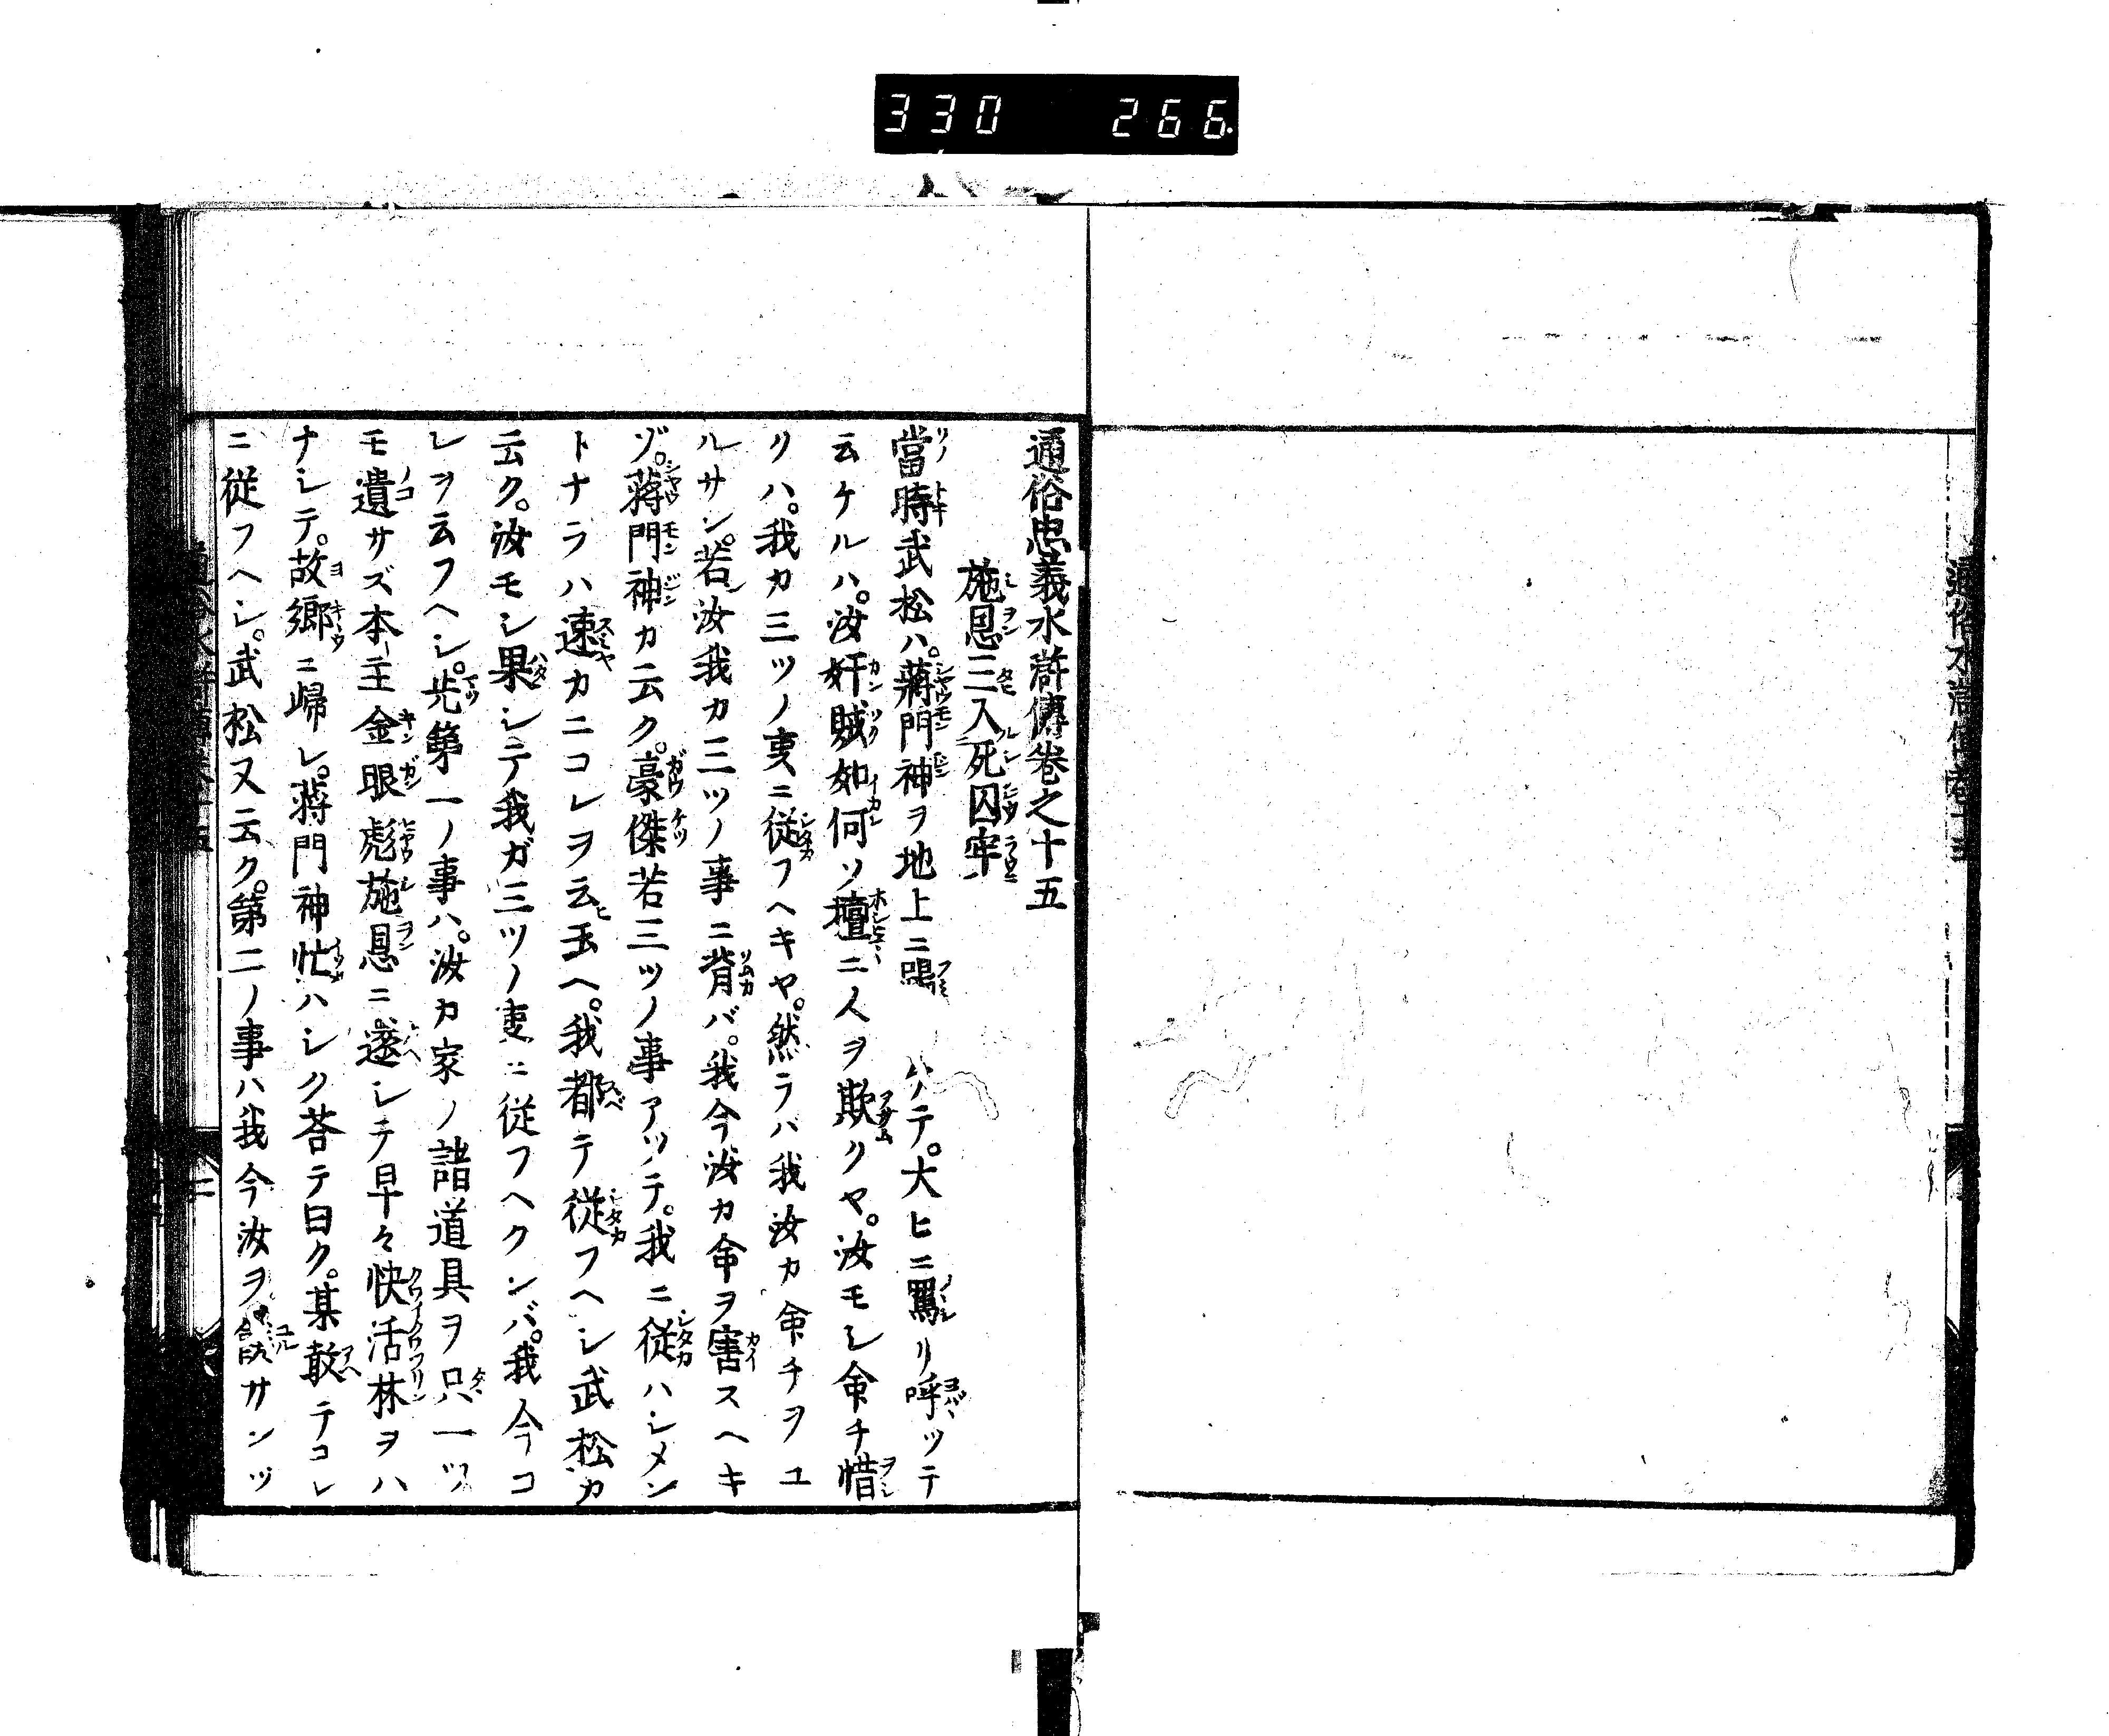 330 266
通俗忠義水滸傳卷之十五
施恩三入死囚牢
當時武松ハ。蔣門神ヲ地上ニ テ。大ヒニ罵リ呼ツテ
云ケルハ。汝奸賊如何ソ擅ニ人ヲ欺クヤ。汝モシ命チ惜
クハ。我カ三ツノ叓ニ従フヘキヤ。然ラバ我汝カ命チヲユ
ルサン。若汝我カ三ツノ事ニ背バ。我今汝カ命ヲ害スヘキ
ゾ。蔣門神カ云ク。豪傑若三ツノ事アツテ。我ニ従ハシメン
トナラハ速カニコレヲ云玉ヘ。我都テ従フヘシ武松カ
云ク。汝モシ果シテ我ガ三ツノ叓ニ従フヘクンバ。我今コ
レヲ云フヘシ。先第一ノ事ハ。汝カ家ノ諸道具ヲ只一ツ
モ遺サズ本主金眼彪施恩ニ還シテ早々快活林ヲハ
ナレテ。故郷ニ歸レ。蔣門神忙ハシク荅テ曰ク。某敢テコレ
ニ従フヘシ。武松又云ク。第二ノ事ハ我今汝ヲ サンツ